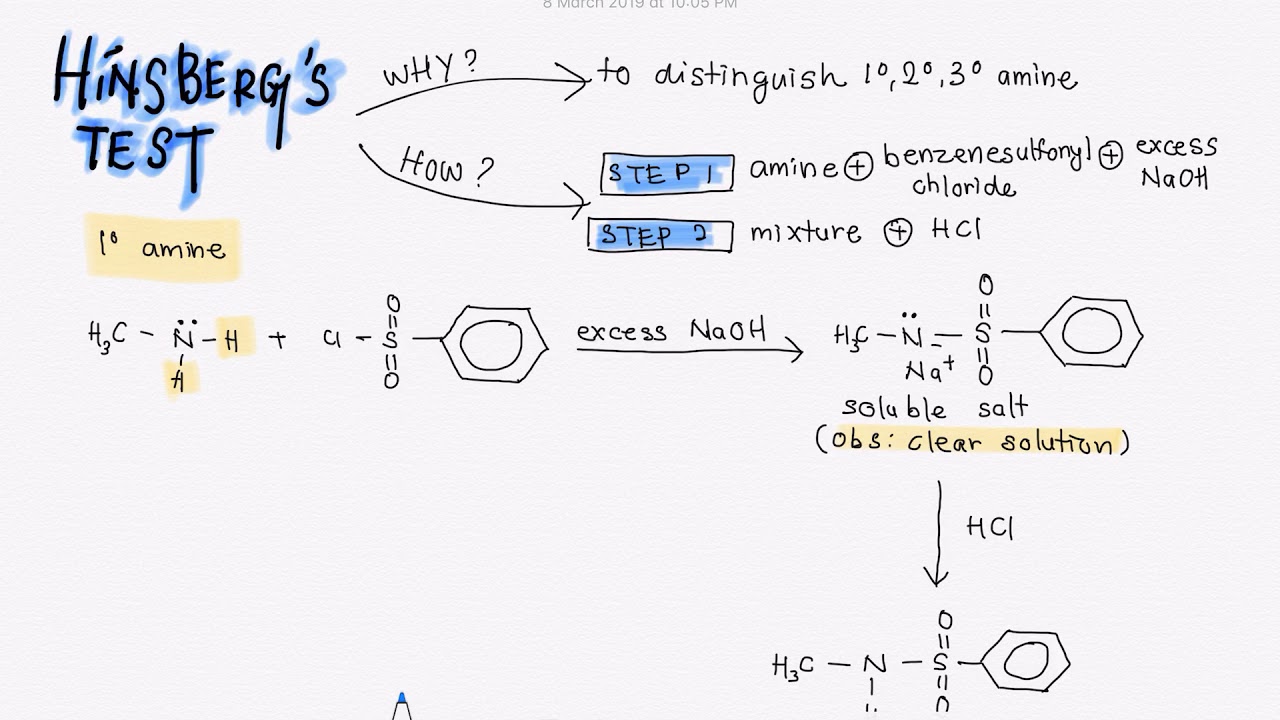 8 March 2019 at 10:05 PM
HINSBERG'S
TEST
WHY?
to distinguish 1°, 2°, 3° amine
HOW?
STEP 1 amine + benzenesulfonyl chloride + excess NaOH
STEP 2 mixture + HCl
1° amine
H₃C – N̈ – H + Cl – S –
O
O
H
excess NaOH
H₃C – N̈⁻ – S –
O
O
Na⁺
soluble salt
(obs: clear solution)
HCl
O
H₃C – N – S –
O